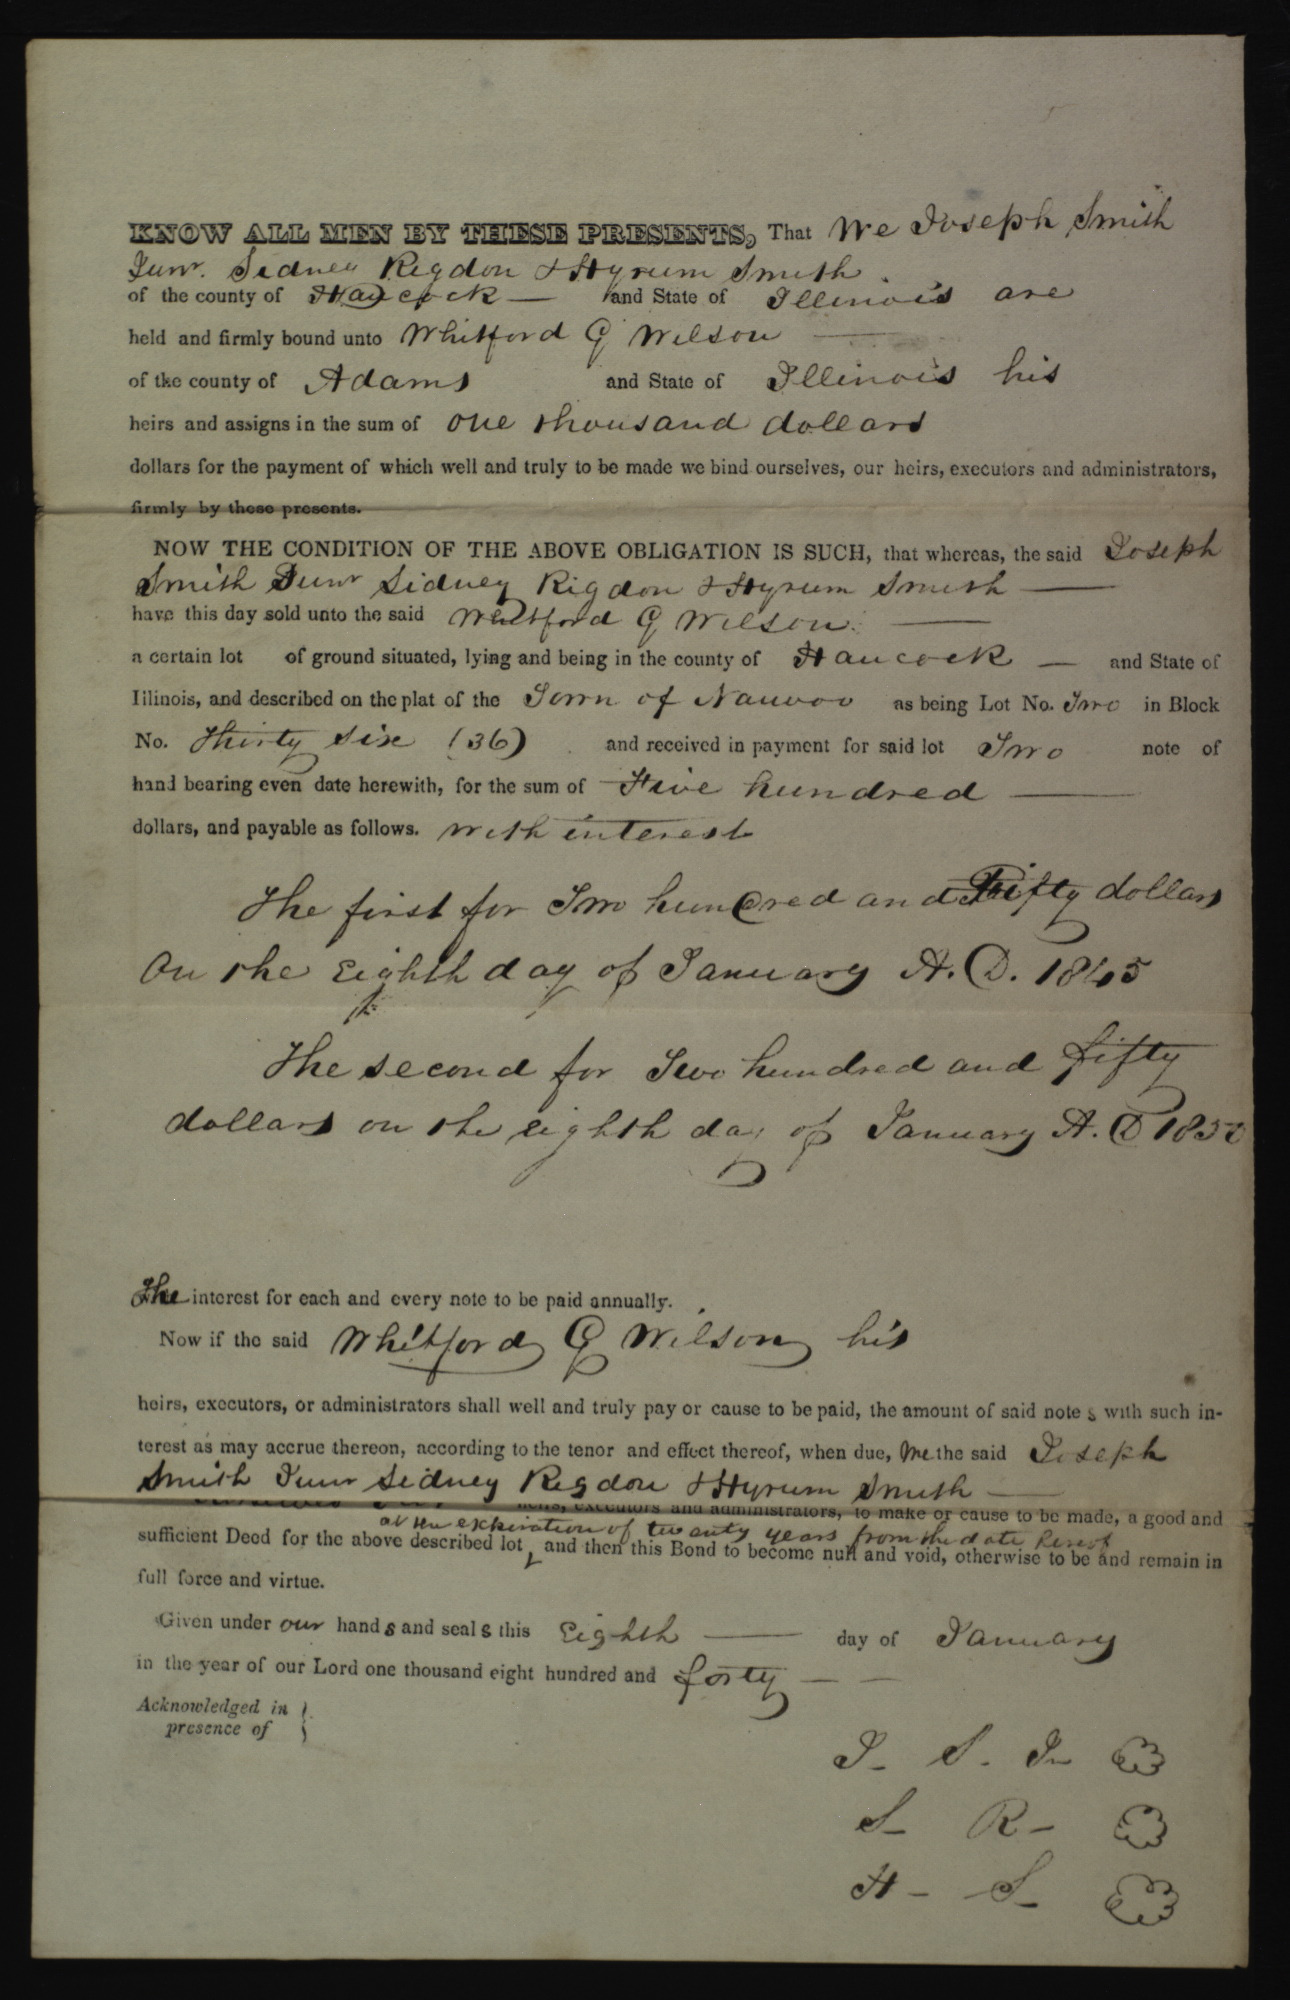 KNOW ALL MEN BY THESE PRESENTS, That We Joseph Smith
Junr. Sidney Rigdon & Hyrum Smith
of the county of Hancock — and State of Illinois are
held and firmly bound unto Whitford G Wilson —
of the county of Adams and State of Illinois his
heirs and assigns in the sum of one thousand dollars
dollars for the payment of which well and truly to be made we bind ourselves, our heirs, executors and administrators,
firmly by these presents.
NOW THE CONDITION OF THE ABOVE OBLIGATION IS SUCH, that whereas, the said Joseph
Smith Junr Sidney Rigdon & Hyrum Smith —
have this day sold unto the said Whitford G Wilson. —
a certain lot of ground situated, lying and being in the county of Hancock — and State of
Illinois, and described on the plat of the Town of Nauvoo as being Lot No. Two in Block
No. Thirty six (36) and received in payment for said lot Two note of
hand bearing even date herewith, for the sum of Five hundred —
dollars, and payable as follows. with interest
The first for Two hundred and Fifty dollars
On the Eighth day of January A. D. 1845
The second for Two hundred and fifty
dollars on the eighth day of January A. D 1850
The interest for each and every note to be paid annually.
Now if the said Whitford G Wilson his
heirs, executors, or administrators shall well and truly pay or cause to be paid, the amount of said note s with such in-
terest as may accrue thereon, according to the tenor and effect thereof, when due, We the said Joseph
Smith Junr Sidney Rigdon & Hyrum Smith —
heirs, executors and administrators, to make or cause to be made, a good and
at the expiration of twenty years from the date hereof
sufficient Deed for the above described lot, and then this Bond to become null and void, otherwise to be and remain in
full force and virtue.
Given under our hands and seals this Eighth — day of January
in the year of our Lord one thousand eight hundred and forty — —
Acknowledged in }
presence of }
J- S- Jr
S- R-
H- S-